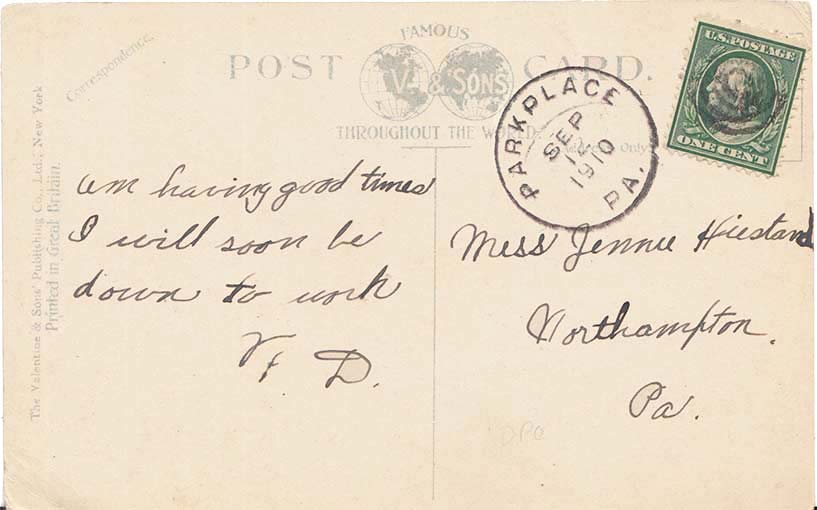 FAMOUS
POST CARD.
V. & SONS
THROUGHOUT THE WORLD.
Correspondence.
The Valentine & Sons' Publishing Co., Ltd., New York
Printed in Great Britain.
U.S. POSTAGE
ONE CENT
PARKPLACE
SEP
12
1910
PA.
Only
am having good times
I will soon be
down to work
D.
Miss Jennie Hiestand
Northampton.
Pa.
DPO